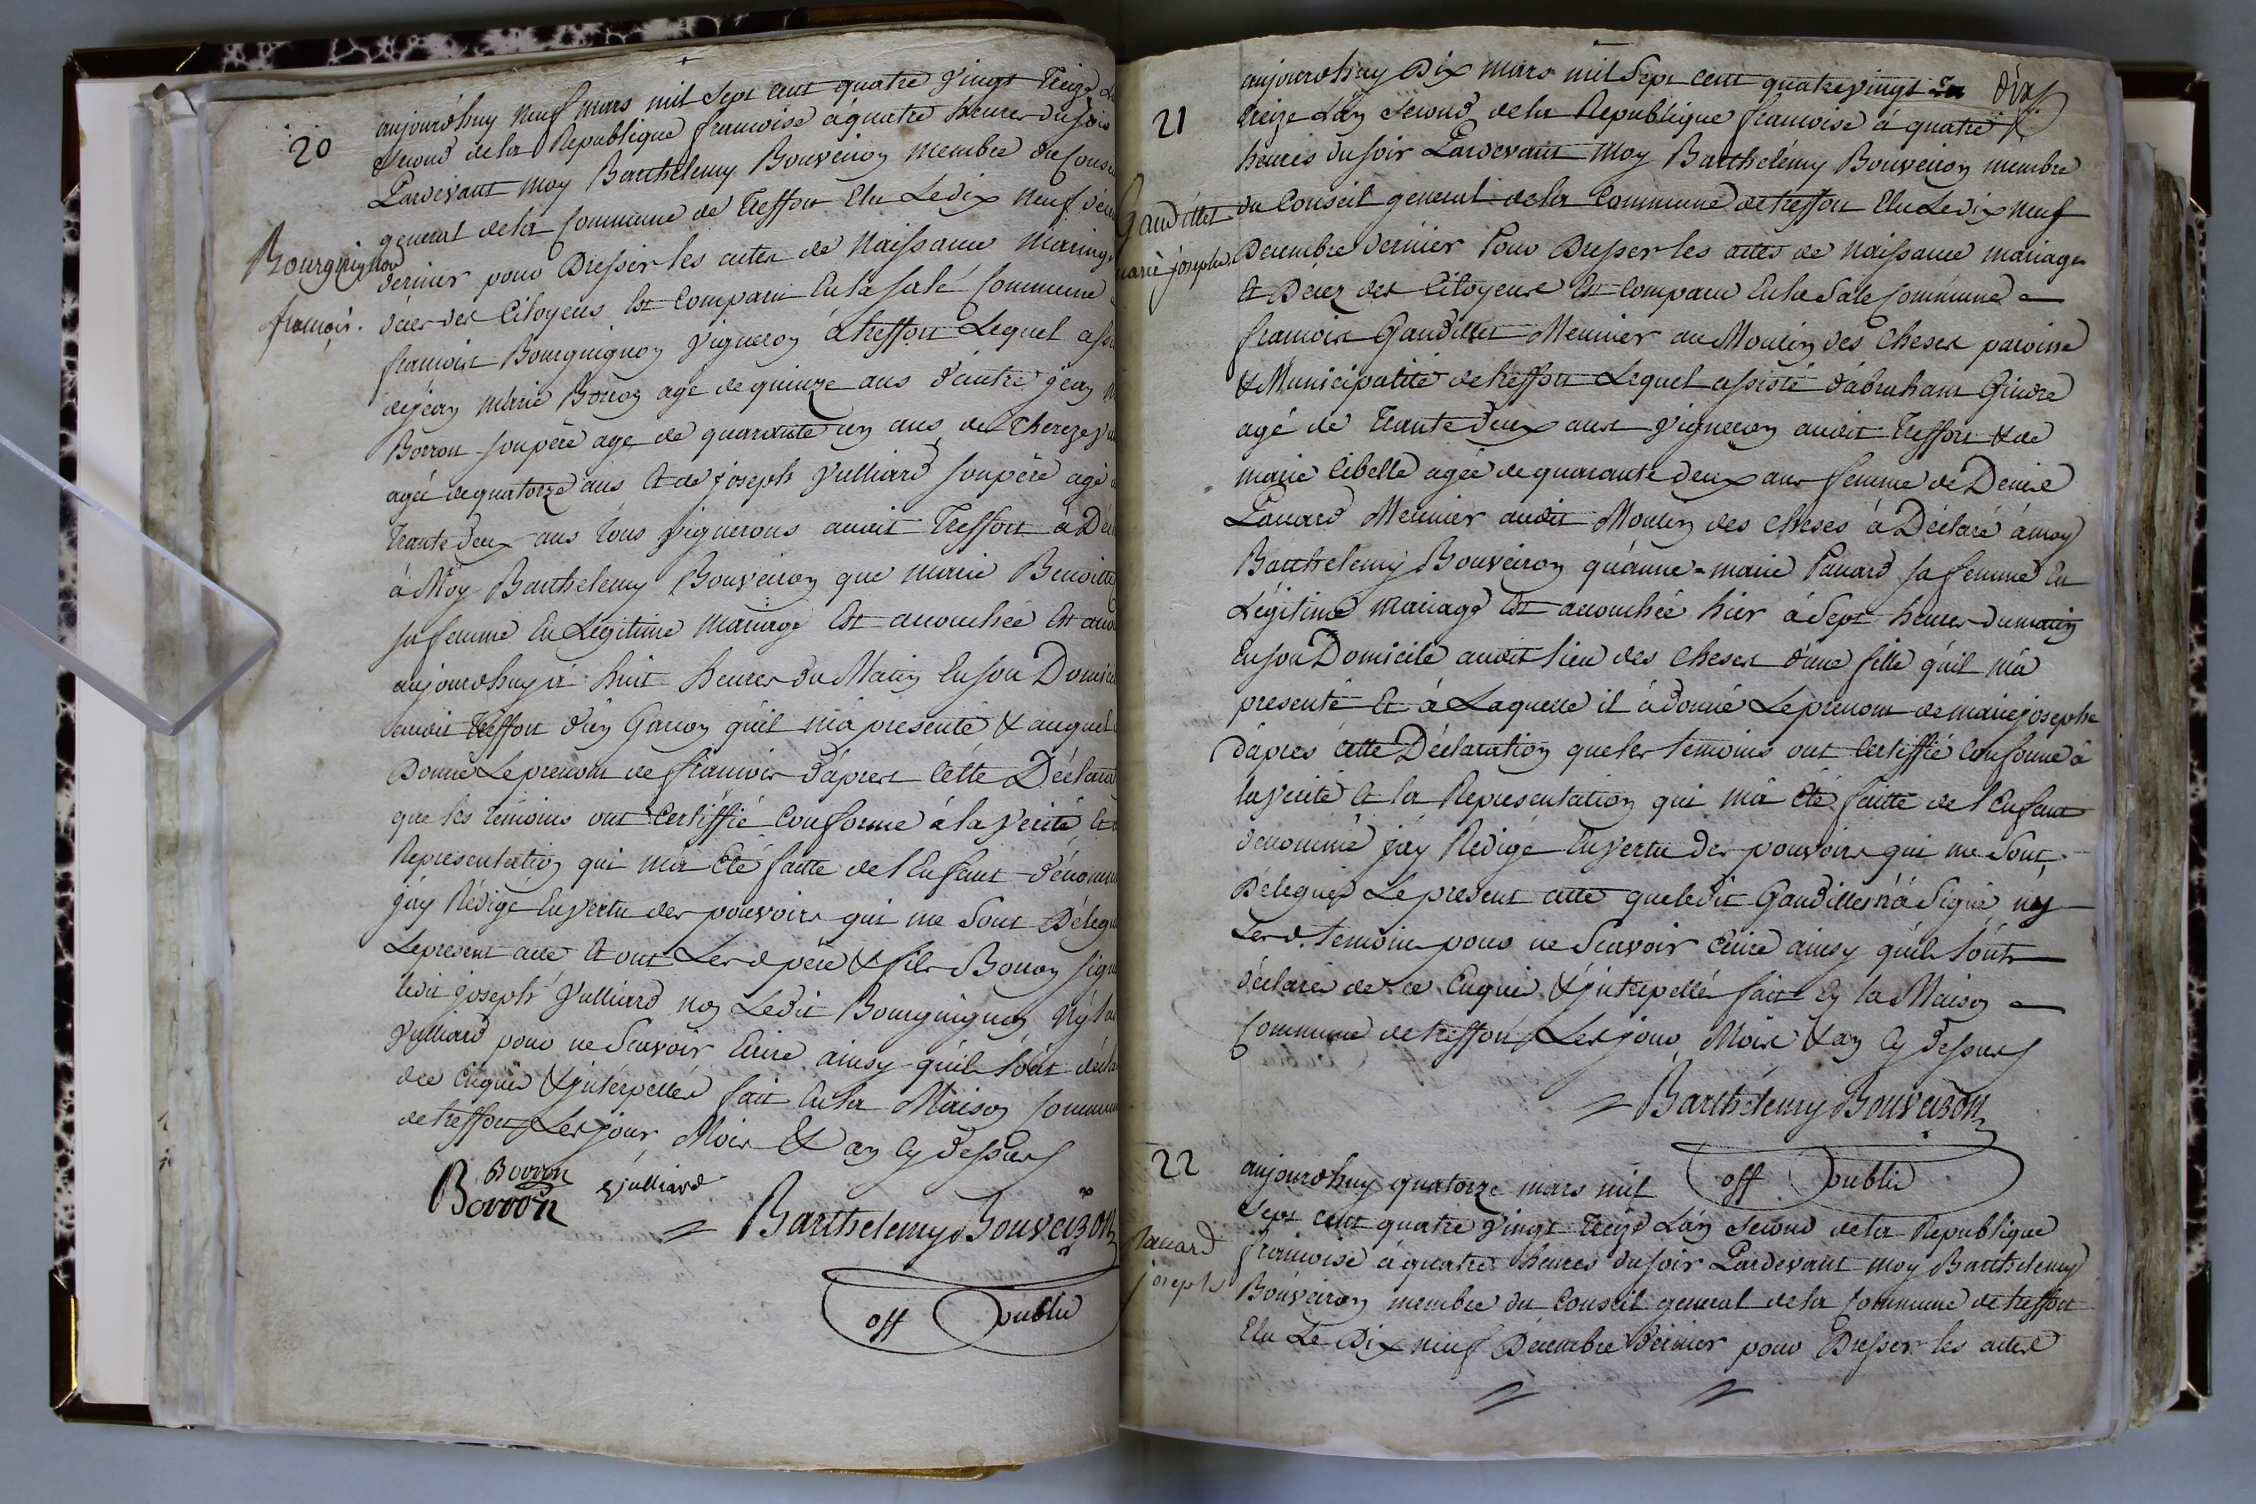 20
Bourguignon
francois.
aujourd'huy neuf mars mil sept cent quatre vingt treize
second de la Republique francoise à quatre heures du soir
Pardevant moy Barthelemy Bouveiron membre du
general de la Commune de Treffort Elu Le dix neuf
dernier pour Dresser les actes de Naissance Mariage
décès des Citoyens Est Comparu En la sale Commune
francois Bourguignon Vigneron à treffort Lequel
de jean marie Borron agé de quinze ans d'autre jean
Borron son père age de quarante un ans, de Thereze
agée de quatorze ans et de joseph Vulliard son père agé
trante deux ans tous vignerons audit Treffort à
à Moy Barthelemy Bouveiron que marie Benoitte
sa femme En Légitime Mariage Est accouchée
aujourdhuy à huit heures du Matin En son
audit Treffort d'un Garcon qu'il m'a presenté & auquel
Donné Le prenom de francois d'apres Cétte
que les témoins ont Certiffié Conforme à la Verité Et
Representation qui m'a Eté faitte de l'Enfant
j'ay Rédigé En vertu des pouvoirs qui me Sont
Le present acte Et ont Les d. père & fils Borron
ledit joseph Vulliard non Ledit Bourguignon Ny
Vulliard pour ne Scavoir Ecrire ainsy qu'ils l'ont
de ce Enquis & jnterpellés fait En la Maison
de treffort Les jour, Mois & an Cy dessus
Borron
Borron Vulliard
Barthelemy Bouveiron
off public
dix
21
Gaudillet
marie josephe
aujourdhuy Dix mars mil Sept cent quatrevingt
treize L'an second de la Republique francoise à quatre
heures du soir Pardevant Moy Barthélémy Bouveiron membre
du Conseil general de la Commune de treffort Elu Le dix neuf
Decembre dernier Pour Dresser les actes de naissance mariages
Et Décéz des Citoyens Est Comparu En la Sale Commune
francois Gaudillet Meunier au Moulin des Cheses paroisse
& Municipalité de treffort Lequel assisté d'abraham Gindre
agé de Trante deux ans Vigneron audit Treffort & de
marie Cibelle agée de quarante deux ans femme de Denis
Pauard Meunier audit Moulin des Cheses à Déclaré à moy
Barthelemy Bouveiron qu'anne-marie Pauard sa femme En
Légitime Mariage Est accouchée hier à Sept heures du matin
En son Domicile audit lieu des Cheses d'une fille qu'il m'a
presenté Et à Laquelle il à donné Le prenom de marie josephe
d'apres cette Déclaration que les temoins ont Certiffié Conforme à
la Verité Et la Representation qui m'a Eté faitte de l'Enfant
denommé j'ay Redigé En vertu des pouvoirs qui me Sont
Délegués Le present acte que ledit Gaudillet n'a Signé, ny
Les d. temoins pour ne Scavoir Ecrire ainsy qu'ils l'ont
déclarés de ce Enquis & jnterpellés fait En la Maison
Commune de treffort Les jour, Mois & an Cy dessus
Barthélemy Bouveiron
off public
22
Pauard
joseph
aujourdhuy quatorze mars mil
Sept cent quatre vingt treize L'an second de la Republique
francoise à quatre heures du soir Pardevant moy Barthelemy
Bouveiron membre du Conseil general de la Commune de treffort
Elu Le Dix neuf Décembre dernier pour Dresser les actes